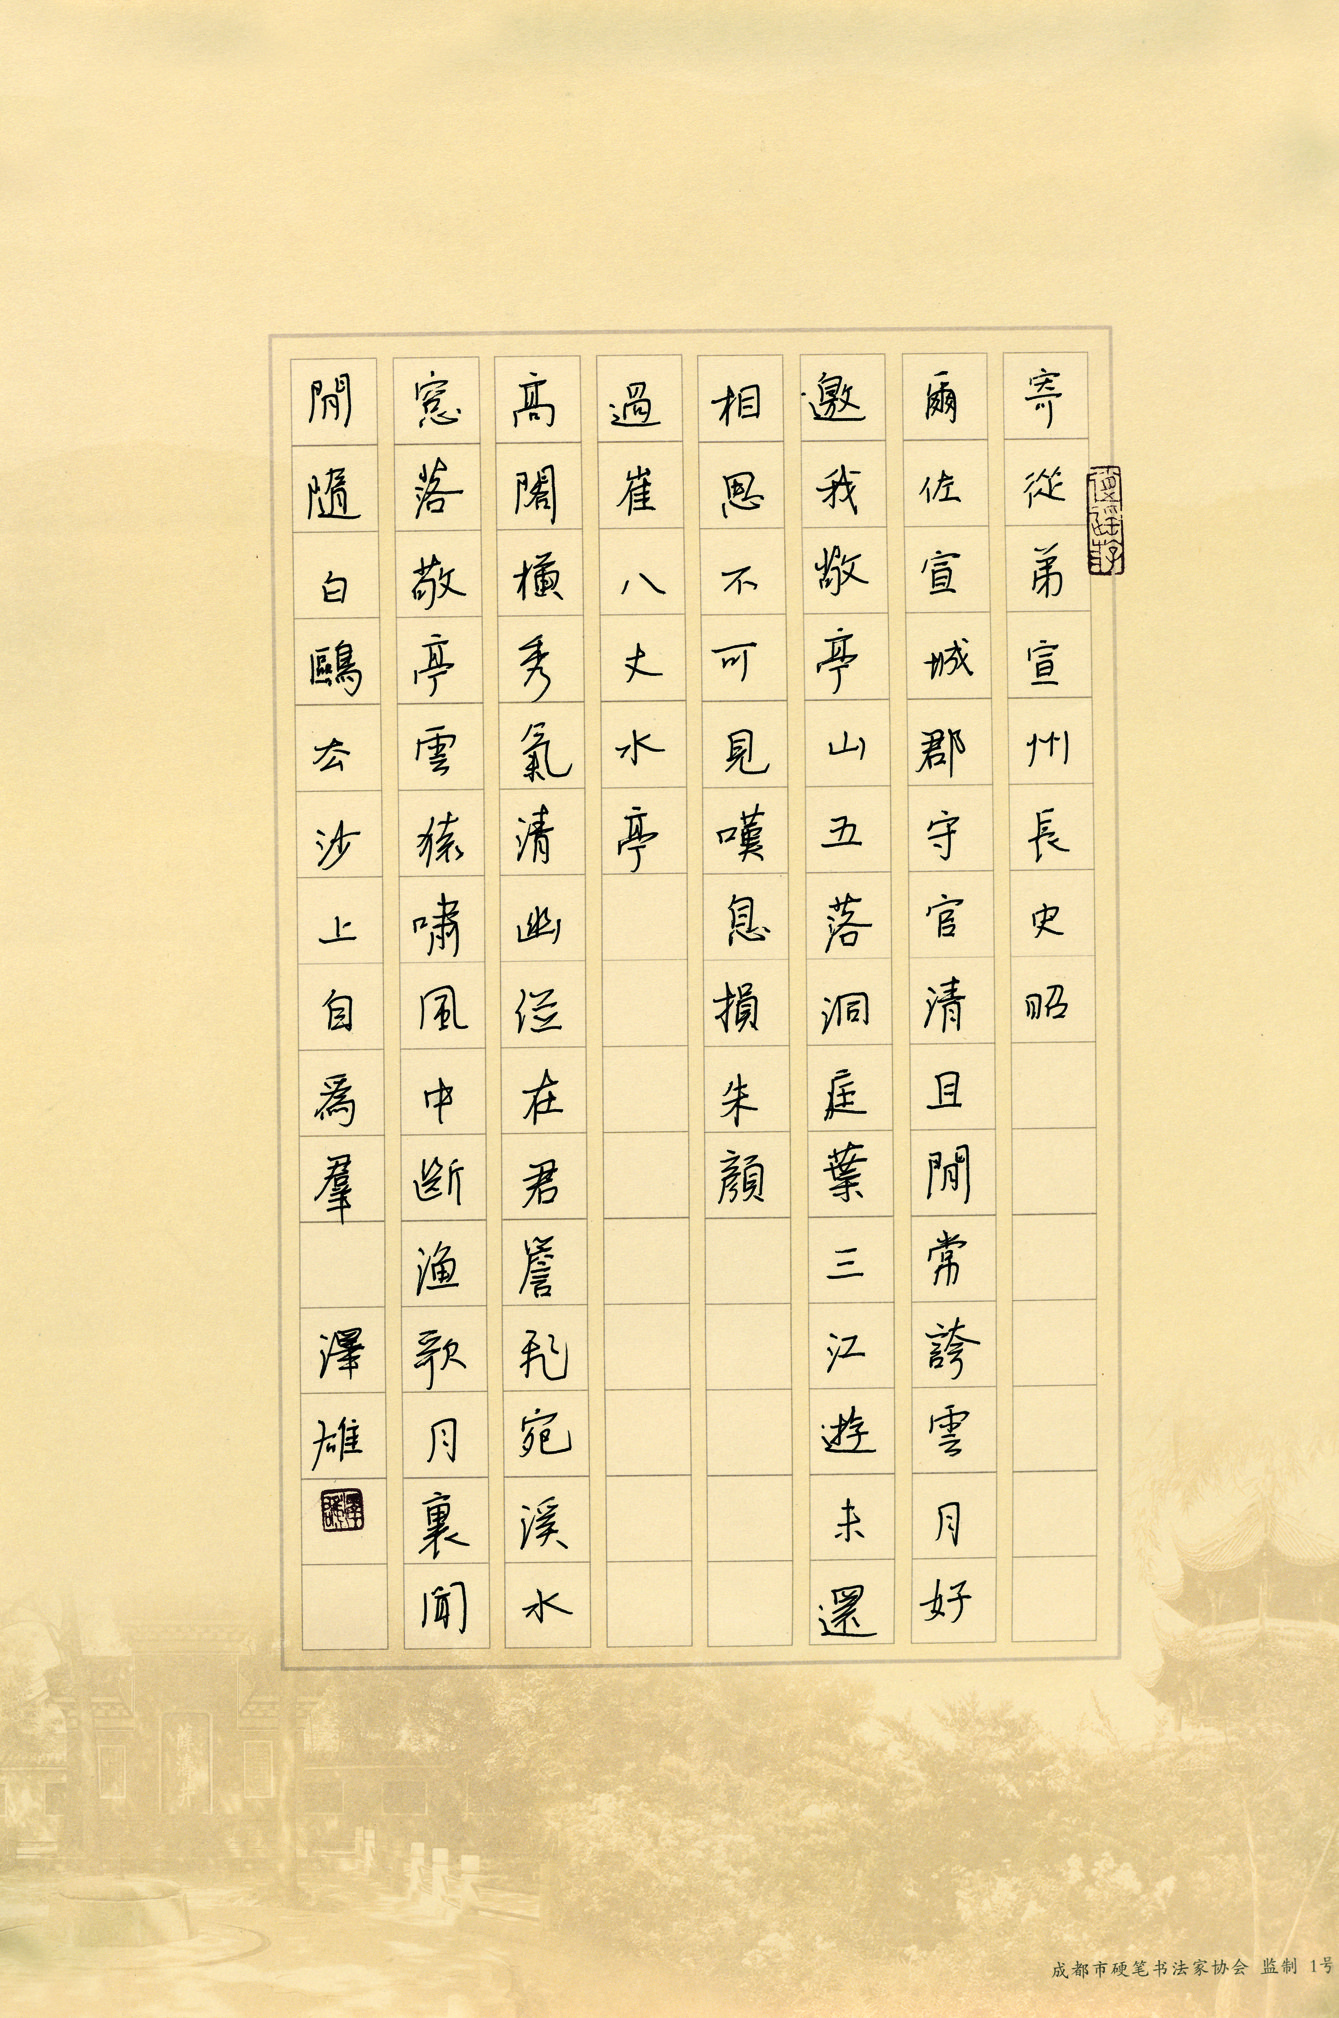 寄從弟宣州長史昭
爾佐宣城郡守官清且閒常誇雲月好
邀我敬亭山五落洞庭葉三江遊未還
相思不可見嘆息損朱顏
過崔八丈水亭
高閣橫秀氣清幽併在君簷飛宛溪水
窓落敬亭雲猿嘯風中斷漁歌月裏聞
閒隨白鷗去沙上自為羣
澤雄
成都市硬笔书法家协会 监制 1号